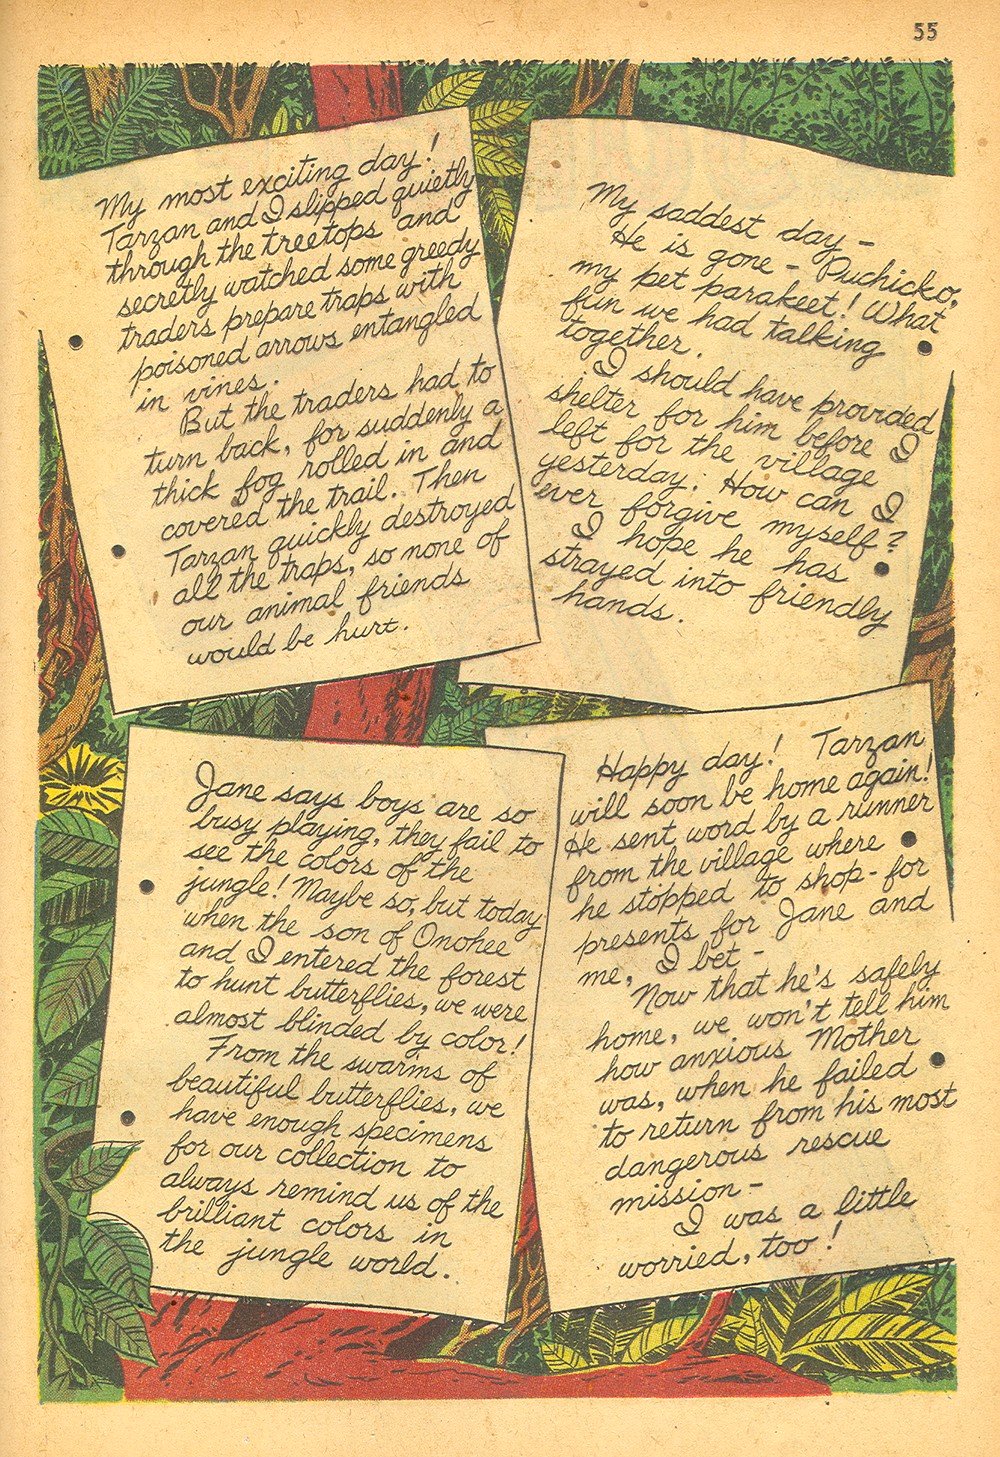 55
My most exciting day!
Tarzan and I slipped quietly
through the treetops and
secretly watched some greedy
traders prepare traps with
poisoned arrows entangled
in vines.
But the traders had to
turn back, for suddenly a
thick fog rolled in and
covered the trail. Then
Tarzan quickly destroyed
all the traps, so none of
our animal friends
would be hurt.
My saddest day -
He is gone - Puchicko,
my pet parakeet! What
fun we had talking
together.
I should have provided
shelter for him before I
left for the village
yesterday. How can I
ever forgive myself?
I hope he has
strayed into friendly
hands.
Jane says boys are so
busy playing, they fail to
see the colors of the
jungle! Maybe so, but today
when the son of Onohee
and I entered the forest
to hunt butterflies, we were
almost blinded by color!
From the swarms of
beautiful butterflies, we
have enough specimens
for our collection to
always remind us of the
brilliant colors in
the jungle world.
Happy day! Tarzan
will soon be home again!
He sent word by a runner
from the village where
he stopped to shop - for
presents for Jane and
me, I bet -
Now that he's safely
home, we won't tell him
how anxious Mother
was, when he failed
to return from his most
dangerous rescue
mission -
I was a little
worried, too!